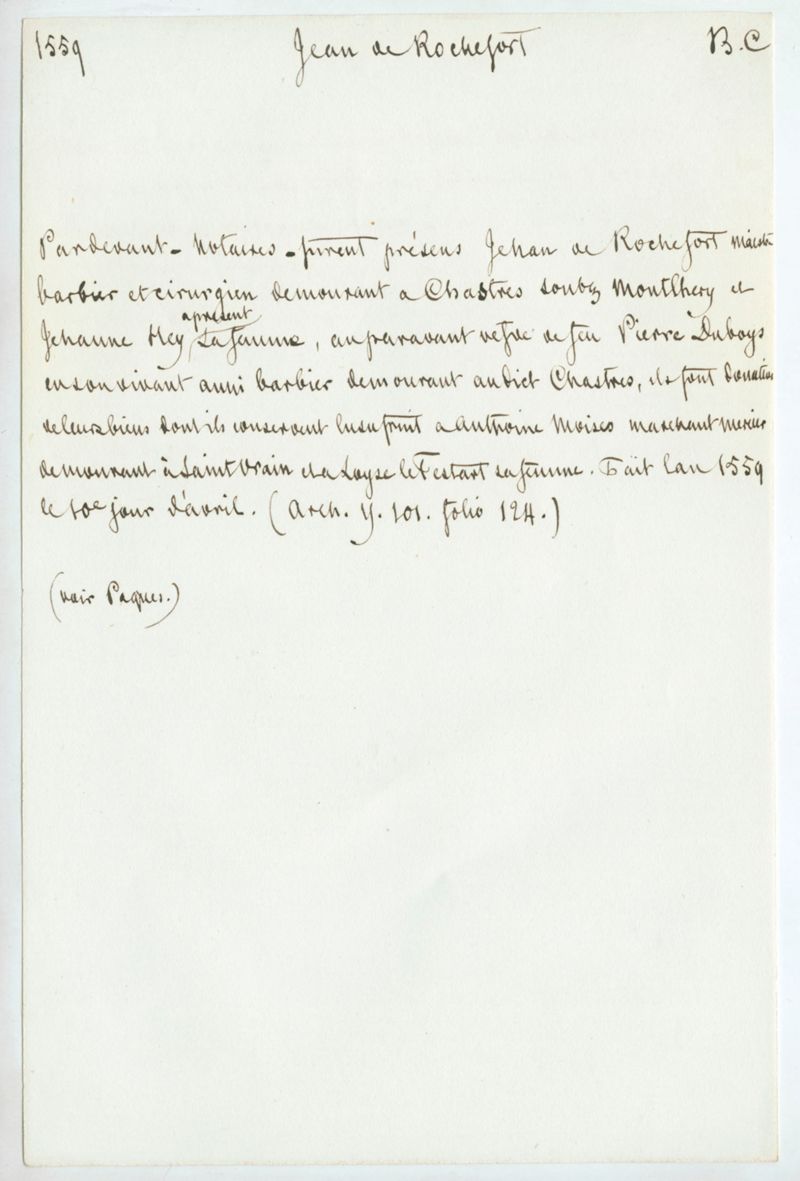 1559 Jean de Rochefort B.C
Pardevant - Notaires - furent présens Jehan de Rochefort maistre
barbier et cirurgien demourant a Chastres soubz Montlhery et
Jehanne Hey apresent sa femme, auparavant vefve de feu Pierre Duboys
en son vivant aussi barbier demourant audict Chastres, ils font donation
de leurs biens dont ils conservent lusufruit a Anthoine Moises marchant mercier
demourant à Saint Vrain et a Loyse le Festart sa femme. Fait lan 1559
le 10e jour d'avril. (Arch. Y. 101. folio 124.)
(voir Paques.)